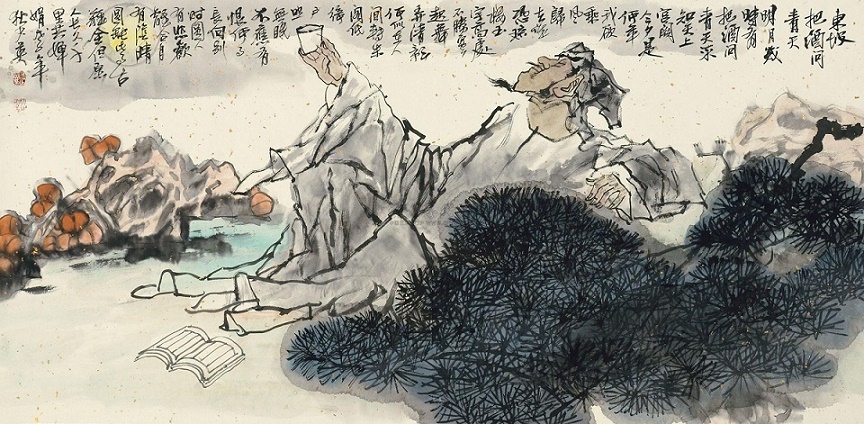 東坡
把酒問
青天
明月幾
時有
把酒問
青天不
知天上
宮闕
今夕是
何年
我欲
乘
風
歸
去唯
恐瓊
樓玉
宇高處
不勝寒
起舞
弄清影
何似在人
間轉朱
閣低
綺
戶
照
無眠
不應有
恨何事
長向別
時圓人
有悲歡
離合月
有陰晴
圓缺此事古
難全但願
人長久千
里共嬋
娟戊子年